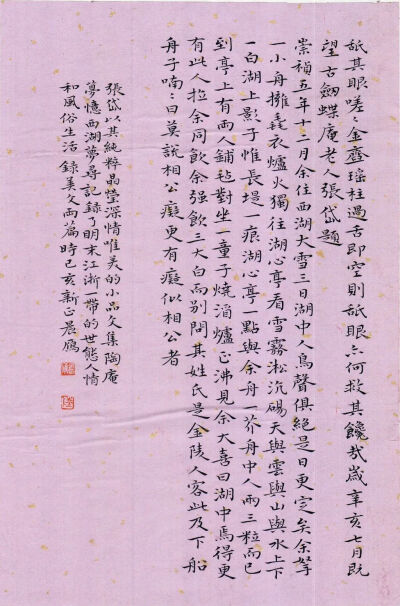 舐其眼嗟嗟金齏瑶柱過舌即空則舐眼亦何救其饞哉歲辛亥七月既
望古劍蝶庵老人張岱題
崇禎五年十二月余住西湖大雪三日湖中人鳥聲俱絕是日更定矣余拏
一小舟擁毳衣爐火獨往湖心亭看雪霧淞沆碭天與雲與山與水上下
一白湖上影子惟長堤一痕湖心亭一點與余舟一芥舟中人兩三粒而已
到亭上有兩人鋪氈對坐一童子燒酒爐正沸見余大喜曰湖中焉得更
有此人拉余同飲余强飲三大白而別問其姓氏是金陵人客此及下船
舟子喃喃曰莫說相公癡更有癡似相公者
張岱以其純粹晶瑩深情唯美的小品文集陶庵
夢憶西湖夢尋記録了明末江浙一帶的世態人情
和風俗生活録美文兩篇時己亥新正晨鴈